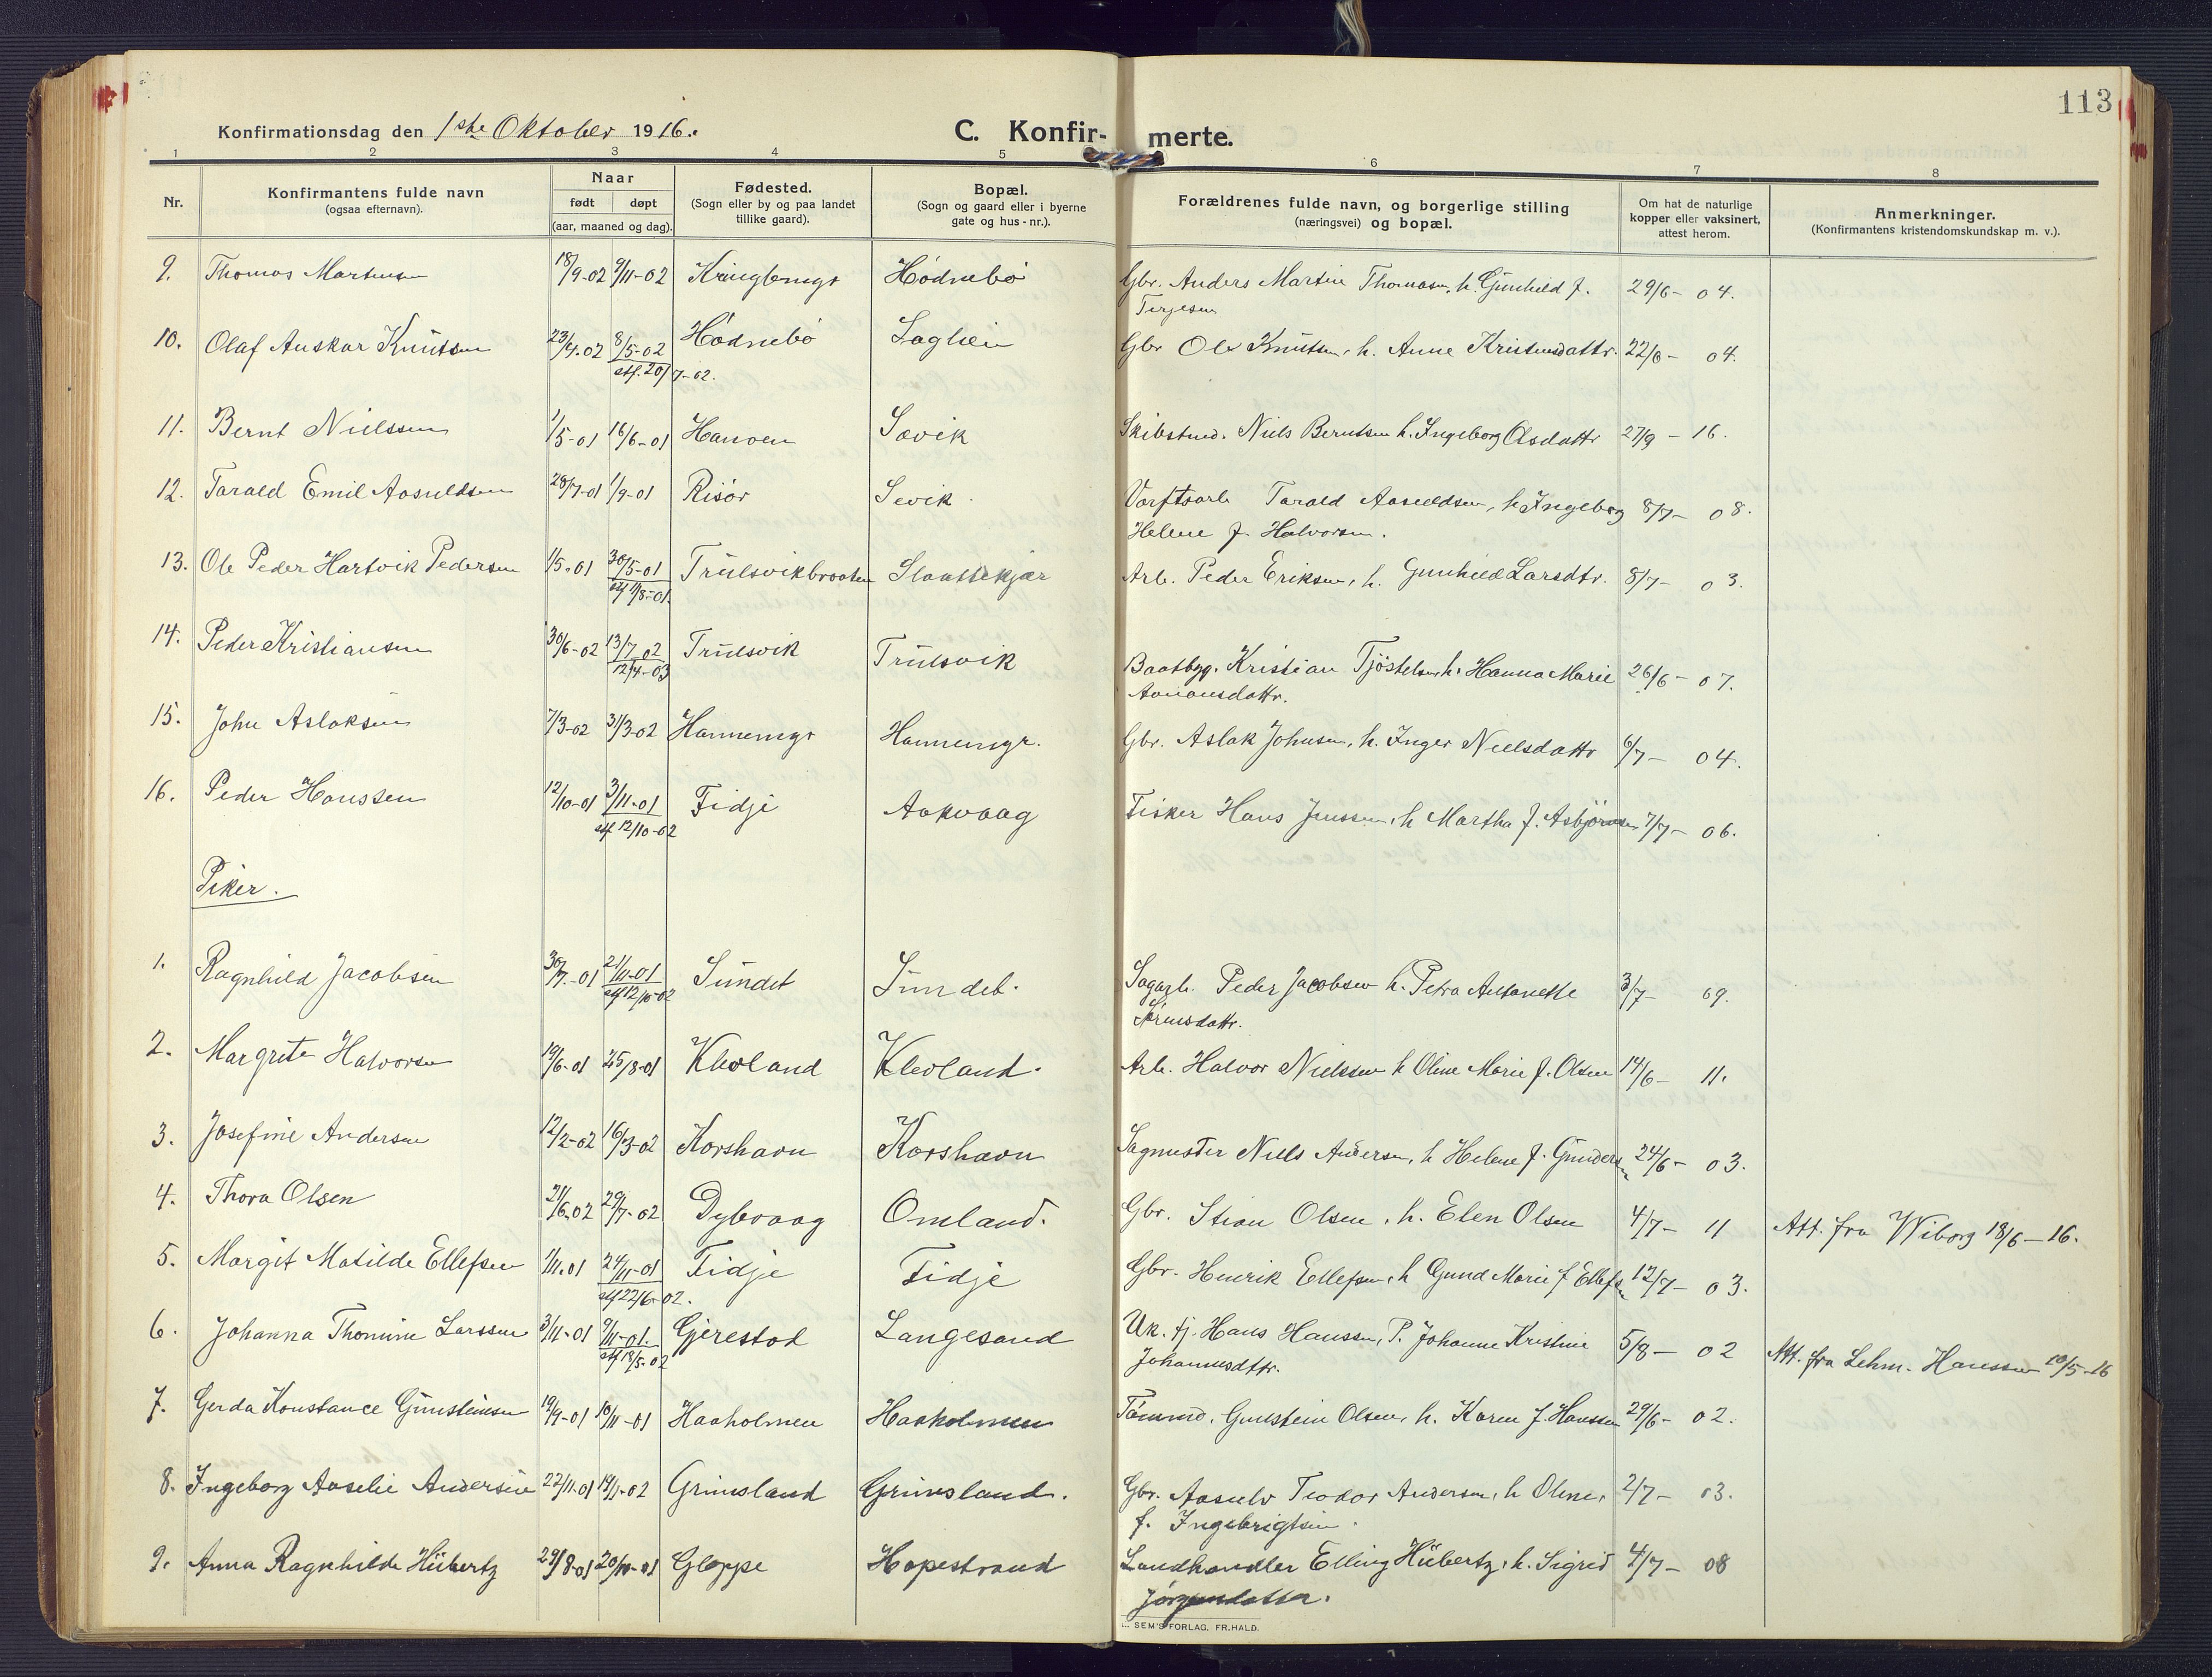 113
Konfirmationsdag den 1ste Oktober 1916.
C. Konfir- merte.
1 2 3 4 5 6 7 8
Nr.
Konfirmantens fulde navn
(ogsaa efternavn).
Naar
født døpt
(aar, maaned og dag).
Fødested.
(Sogn eller by og paa landet
tillike gaard).
Bopæl.
(Sogn og gaard eller i byerne
gate og hus-nr.).
Forældrenes fulde navn, og borgerlige stilling
(næringsvei) og bopæl.
Om hat de naturlige
kopper eller vaksinert,
attest herom.
Anmerkninger.
(Konfirmantens kristendomskundskap m. v.).
9. Thomas Martinsen 18/9-02 9/11-02 Hødnebø Gbr. Anders Martin Thomasn, h. Gunhild f. 29/6- 04.
Terjesen
10. Olaf Anskar Knutsen 23/4-02 8/5-02 Hødnebø Laglien Gbr Ole Knutsen, h. Anne Kristensdattr. 22/6- 04.
stf. 20/7-02.
11. Bernt Nielssen 1/5-01 16/6-01 Søvik Skibstmd. Niels Berntsen h. Ingeborg Olsdattr 27/9-16.
12. Tarald Emil Aasuldsen 28/7-01 1/9-01 Risør Sevik Værftsarb Tarald Aasuldsen, h. Ingeborg 8/7- 08.
Helene f. Halvorsen.
13. Ole Peder Hartvik Pedersen 1/5-01 30/5-01 Trulsvikbraaten Slaattekjær Arb. Peder Eriksen, h. Gunhild Larsdtr. 8/7- 03.
stf 11/8-01.
14. Peder Kristiansen 30/6-02 13/7-02 Trulsvik Trulsvik Baatbyg. Kristian Tjøstelsen, h. Hanna Marie 26/6-07.
12/4-03 Aanonsdattr.
15. John Aslaksen 7/3-02 31/3-02 Hannemyr Hannemyr. Gbr. Aslak Johnsen, h. Inger Nielsdattr 6/7- 04.
16. Peder Hanssen 12/10-01 3/11-01 Fidje Aakvaag Fisker Hans Jenssen, h Martha f. Asbjørnsen 7/7- 06.
stf 12/10-02
Piker.
1. Ragnhild Jacobsen 30/7-01 21/11-01 Sundet Sundet. Sagarb. Peder Jacobsen h. Petra Antonette 3/7- 09.
stf 12/10-02 Sørensdattr.
2. Margrete Halvorsen 19/6-01 25/8-01 Kleoland Kleoland. Arb. Halvor Nielssen h Oline Marie f. Olsen 14/6- 11.
3. Josefine Andersen 12/2-02 16/3-02 Korshavn Korshavn Sagmester Niels Andersen, h Helene f. Gundersen 24/6- 03.
4. Thora Olsen 21/6-02 29/7-02 Dybvaag Omland. Gbr. Stian Olsen, h. Elen Olsen 4/7- 11 Att. fra Wiborg 18/6-16.
5. Margit Matilde Ellefsen 1/11-01 24/11-01 Fidje Fidje Gbr. Henrik Ellefsen, h Gund. Marie f Ellefsn 12/7- 03.
stf 22/6-02.
6. Johanna Thomine Larssen 3/11-01 9/11-01. Gjerestad Langesand Uk. tj. Hans Hanssen, P. Johanne Kristine 5/8- 02 Att. fra Lehm. Hanssen 10/5-16
stf 18/5-02 Johannesdttr.
7. Gerda Konstance Gunsteinsen 19/9-01 10/11-01 Haaholmen Haaholmen Tømmd. Gunstein Olsen, h. Karen f. Hanssen 29/6- 02.
8. Ingeborg Aaselie Andersen 22/11-01 19/1-02 Grimsland Grimsland. Gbr. Aasulv Teodor Andersen, h Oline, 2/7- 03.
f. Ingebrigtsen.
9. Anna Ragnhilde Hübertz 29/8-01 20/10-01 Gloppe Hopestrand Landhandler Elling Hübertz, h. Sigrid 4/7- 08
Jørgensdatter.
SEM'S FORLAG. FR.HALD.